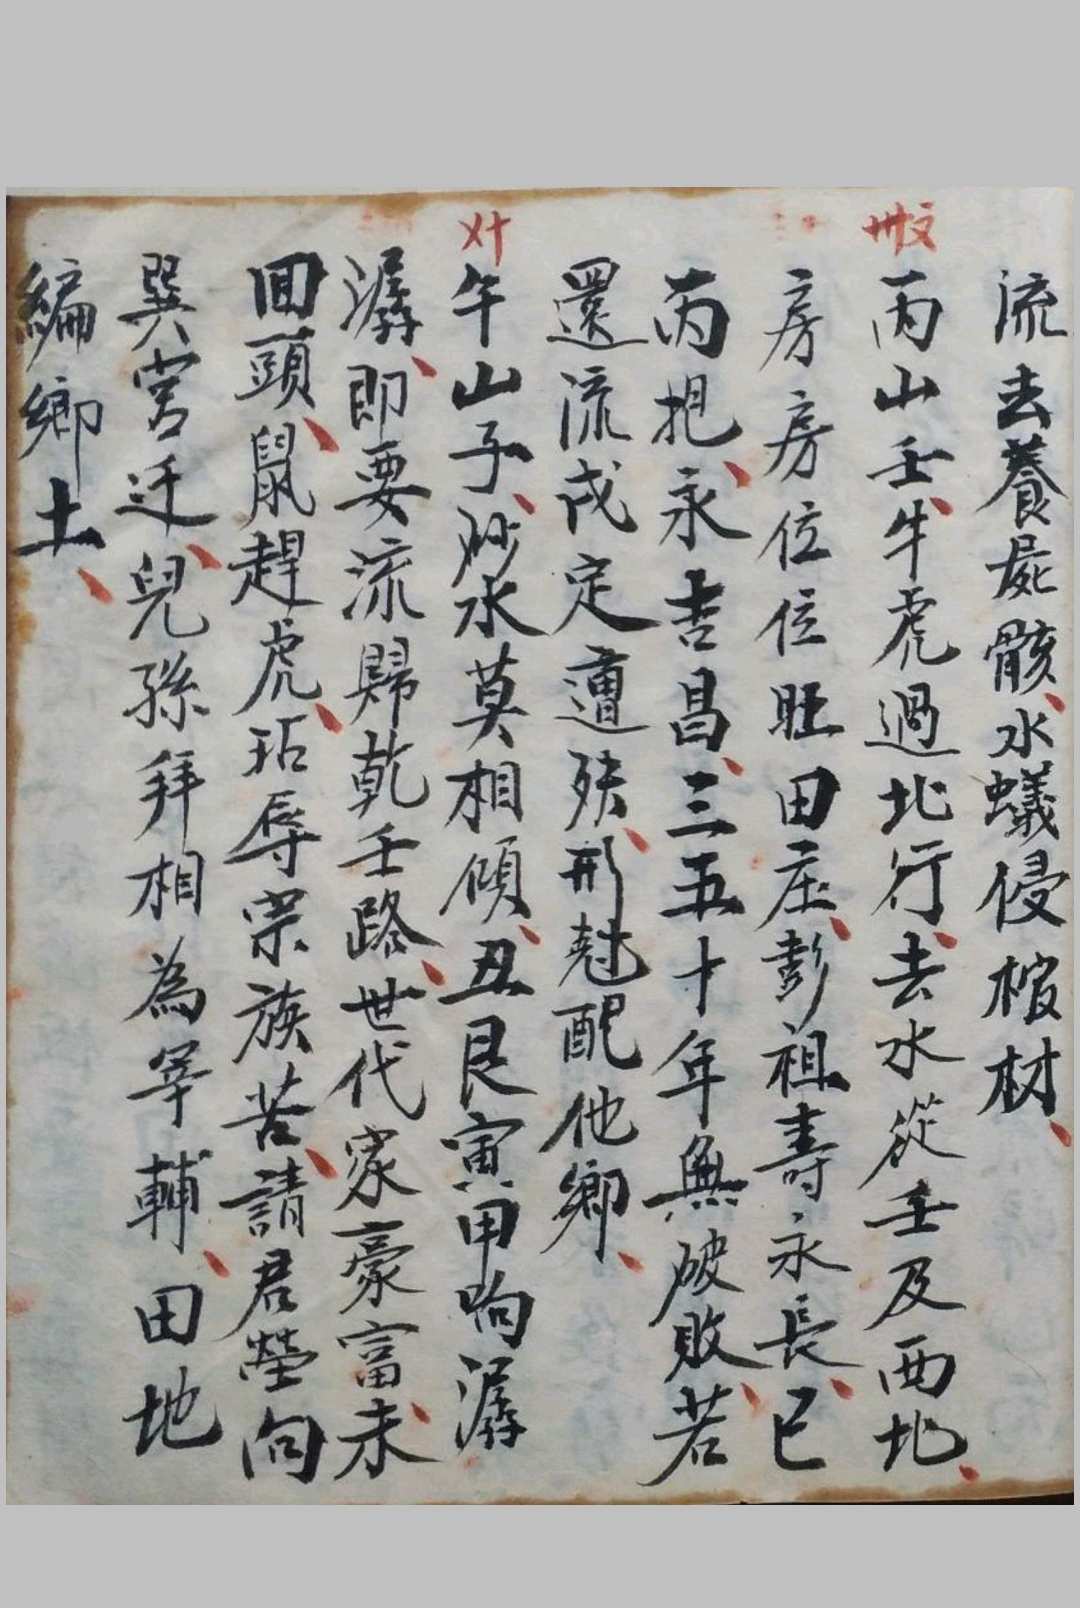 流去養屍骸、水蟻侵棺材、
丙山壬、牛虎過北行、去水從壬及西北、
房房位位旺田庄、彭祖壽永長、巳
丙抱、永吉昌、三五十年無破敗、若
還流戌定遭殃、刑尅配他鄉、
午山子、妙水莫相傾、丑艮寅甲向潺
潺、即要流歸乾壬路、世代家豪富、未
回頭、鼠趕虎、玷辱宗族苦、請君塋向
巽宮迁、兒孫拜相為宰輔、田地
編鄉土、